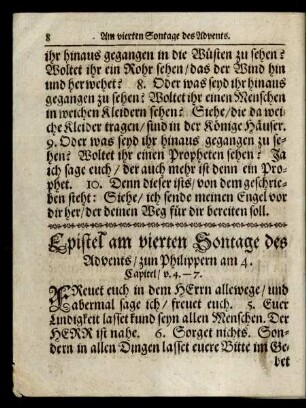 8 Am vierten Sontage des Advents.
ihr hinaus gegangen in die Wüsten zu sehen?
Woltet ihr ein Rohr sehen/das der Wind hin
und her wehet? 8. Oder was seyd ihr hinaus
gegangen zu sehen? Woltet ihr einen Menschen
in weichen Kleidern sehen? Siehe/die da wei-
che Kleider tragen/sind in der Könige Häuser.
9. Oder was seyd ihr hinaus gegangen zu se-
hen? Woltet ihr einen Propheten sehen? Ja
ich sage euch/der auch mehr ist denn ein Pro-
phet. 10. Denn dieser ists/von dem geschrie-
ben steht: Siehe/ich sende meinen Engel vor
dir her/der deinen Weg für dir bereiten soll.
Epistel am vierten Sontage des
Advents/zun Philippern am 4.
Capitel/v. 4.—7.
FReuet euch in dem HErrn allewege/und
abermal sage ich/freuet euch. 5. Euer
Lindigkeit lasset kund seyn allen Menschen. Der
HERR ist nahe. 6. Sorget nichts. Son-
dern in allen Dingen lasset euere Bitte im Ge-
bet